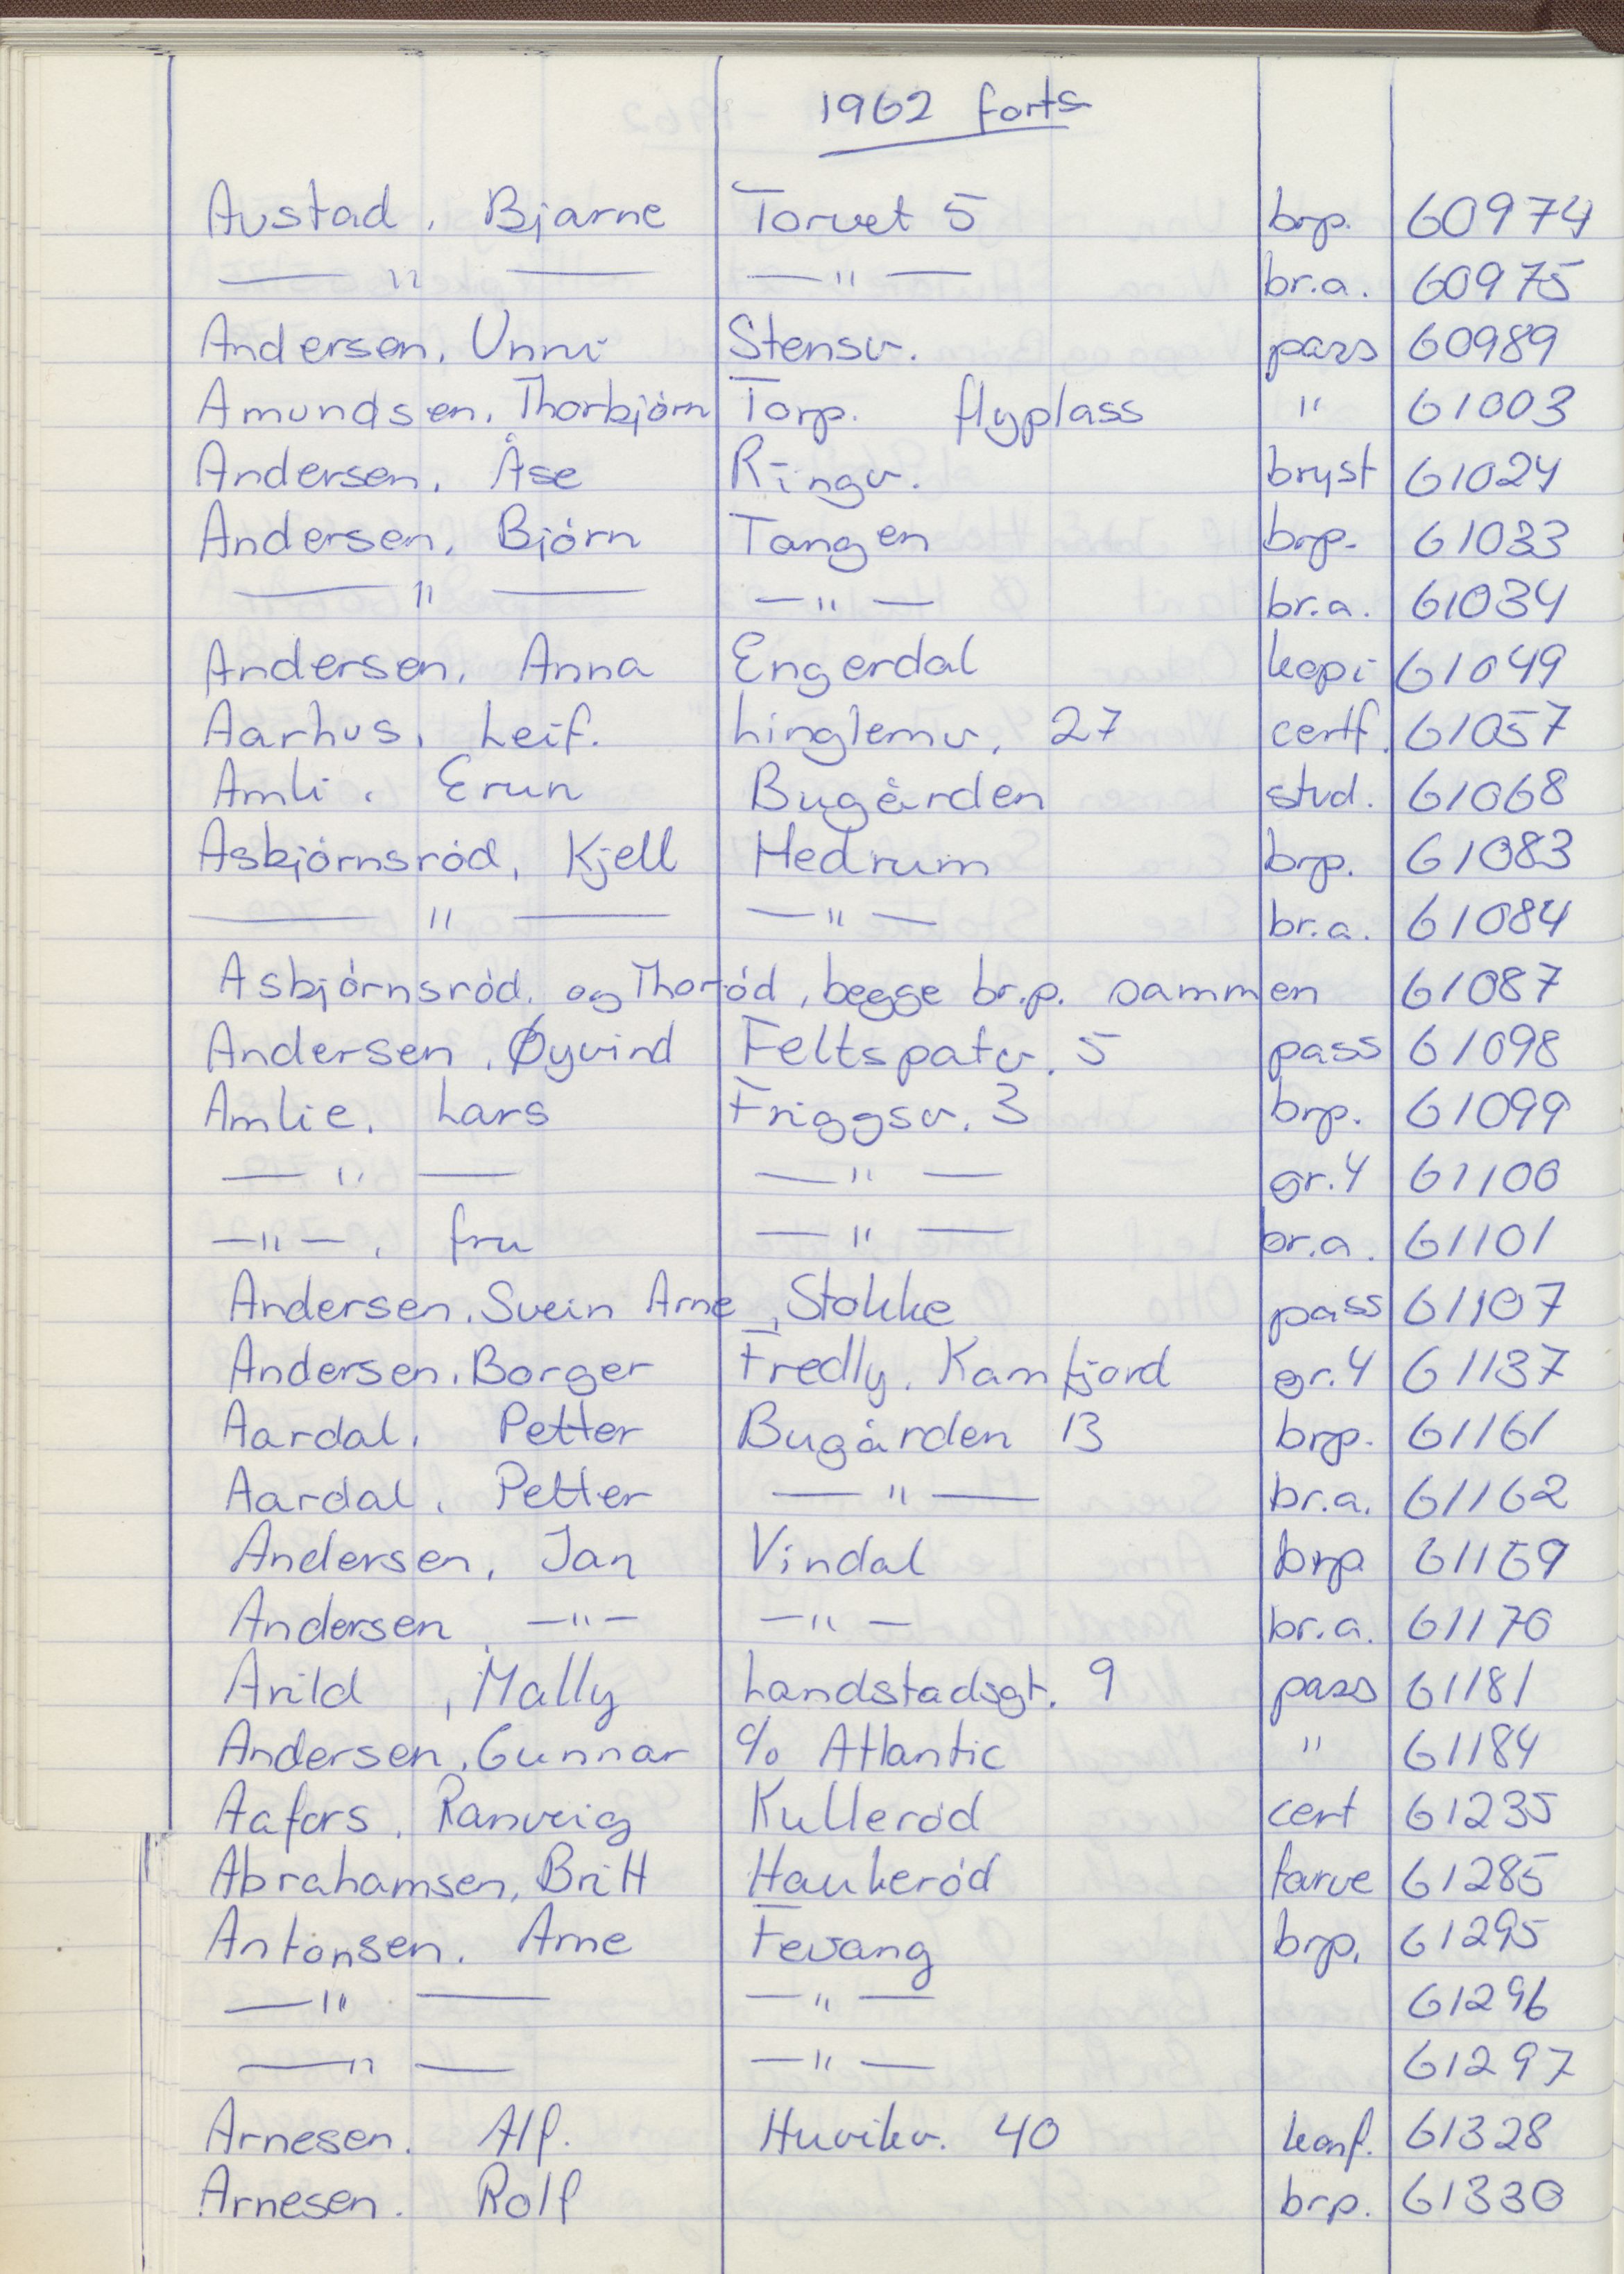 1962 forts
Austad, Bjarne Torvet 5 brp. 60974
— " — — " — br.a. 60975
Andersen, Unni Stensv. pass 60989
Amundsen, Thorbjørn Torp. flyplass " 61003
Andersen, Åse Ringv. bryst 61024
Andersen, Bjørn Tangen brp. 61033
— " — — " — br.a. 61034
Andersen, Anna Engerdal kopi 61049
Aarhus, Leif. Linglemv. 27 certf. 61057
Amli, Erun Bugården stud. 61068
Asbjørnsrød, Kjell Hedrum brp. 61083
— " — — " — br.a. 61084
Asbjørnsrød, og Thorød, begge br.p. sammen 61087
Andersen, Øyvind Feltspatv. 5 pass 61098
Amlie, Lars Friggsv. 3 brp. 61099
— " — — " — gr.4 61100
— " —, fru — " — br.a. 61101
Andersen, Svein Arne, Stokke pass 61107
Andersen, Borger Fredly, Kamfjord gr.4 61137
Aardal, Petter Bugården 13 brp. 61161
Aardal, Petter — " — br.a. 61162
Andersen, Jan Vindal brp 61169
Andersen, — " — — " — br.a. 61170
Arild, Mally Landstadsgt. 9 pass 61181
Andersen, Gunnar c/o Atlantic " 61184
Aafors, Ranveig Kullerød cert 61235
Abrahamsen, Britt Haukerød farve 61285
Antonsen, Arne Fevang brp. 61295
— " — — " — 61296
— " — — " — 61297
Arnesen. Alf. Huvikv. 40 konf. 61328
Arnesen. Rolf brp. 61330